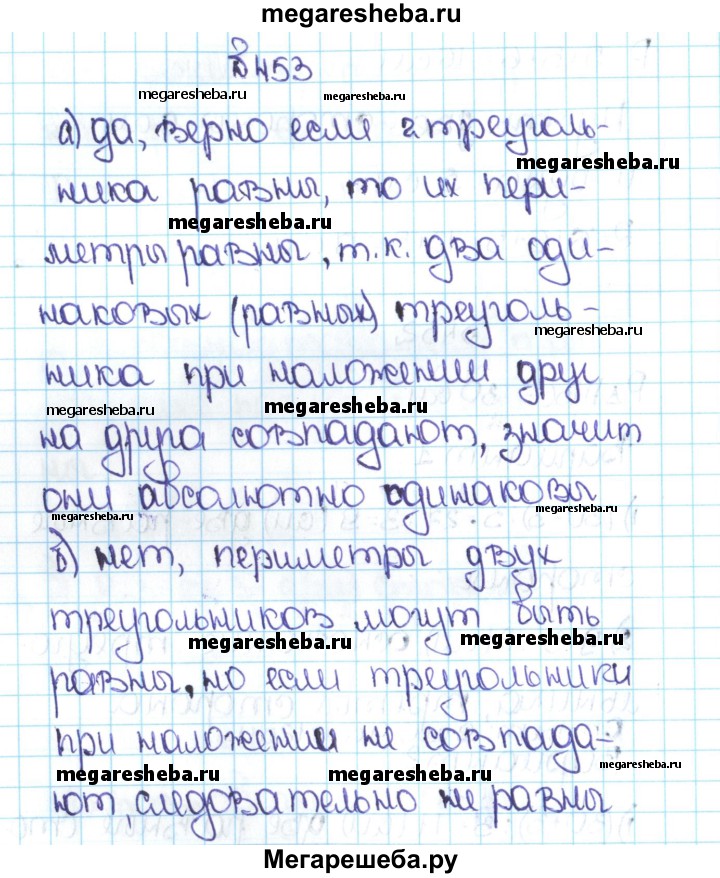 megaresheba.ru
№453
megaresheba.ru megaresheba.ru
а) да, верно если 2 треуголь-
megaresheba.ru
ника равны, то их пери-
megaresheba.ru
метры равны, т.к. два оди-
наковых (равных) треуголь-
megaresheba.ru
ника при наложении друг
megaresheba.ru megaresheba.ru
на друга совпадают, значит
они абсолютно одинаковы
megaresheba.ru megaresheba.ru
б) нет, периметры двух
треугольников могут быть
megaresheba.ru megaresheba.ru
равны, но если треугольники
при наложении не совпада-
megaresheba.ru megaresheba.ru megaresheba.ru
ют, следовательно не равны
Мегарешеба.ру